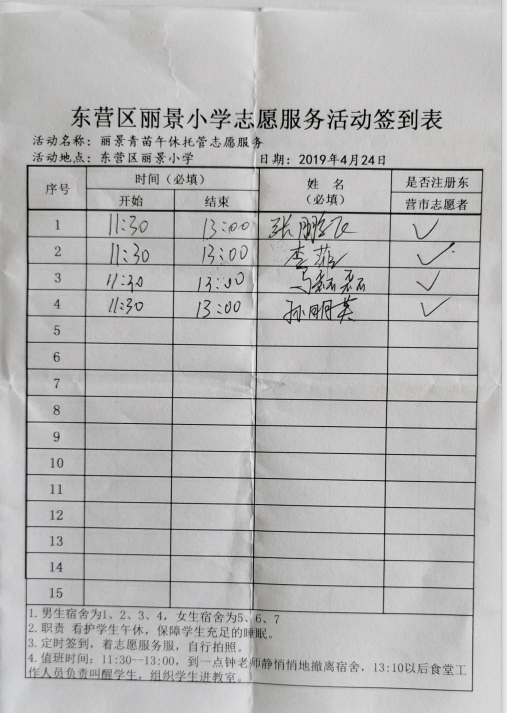 东营区丽景小学志愿服务活动签到表
活动名称：丽景青苗午休托管志愿服务
活动地点：东营区丽景小学 日期：2019年4月24日
序号 时间（必填） 姓 名（必填） 是否注册东营市志愿者
开始 结束
1 11:30 13:00 张鹏飞 ✓
2 11:30 13:00 李 ✓
3 11:30 13:00 马磊磊 ✓
4 11:30 13:00 孙丽英 ✓
5
6
7
8
9
10
11
12
13
14
15
1. 男生宿舍为1、2、3、4，女生宿舍为5、6、7
2. 职责 看护学生午休，保障学生充足的睡眠。
3. 定时签到，着志愿服务服，自行拍照。
4. 值班时间：11:30--13:00，到一点钟老师静悄悄地撤离宿舍，13:10以后食堂工
作人员负责叫醒学生，组织学生进教室。